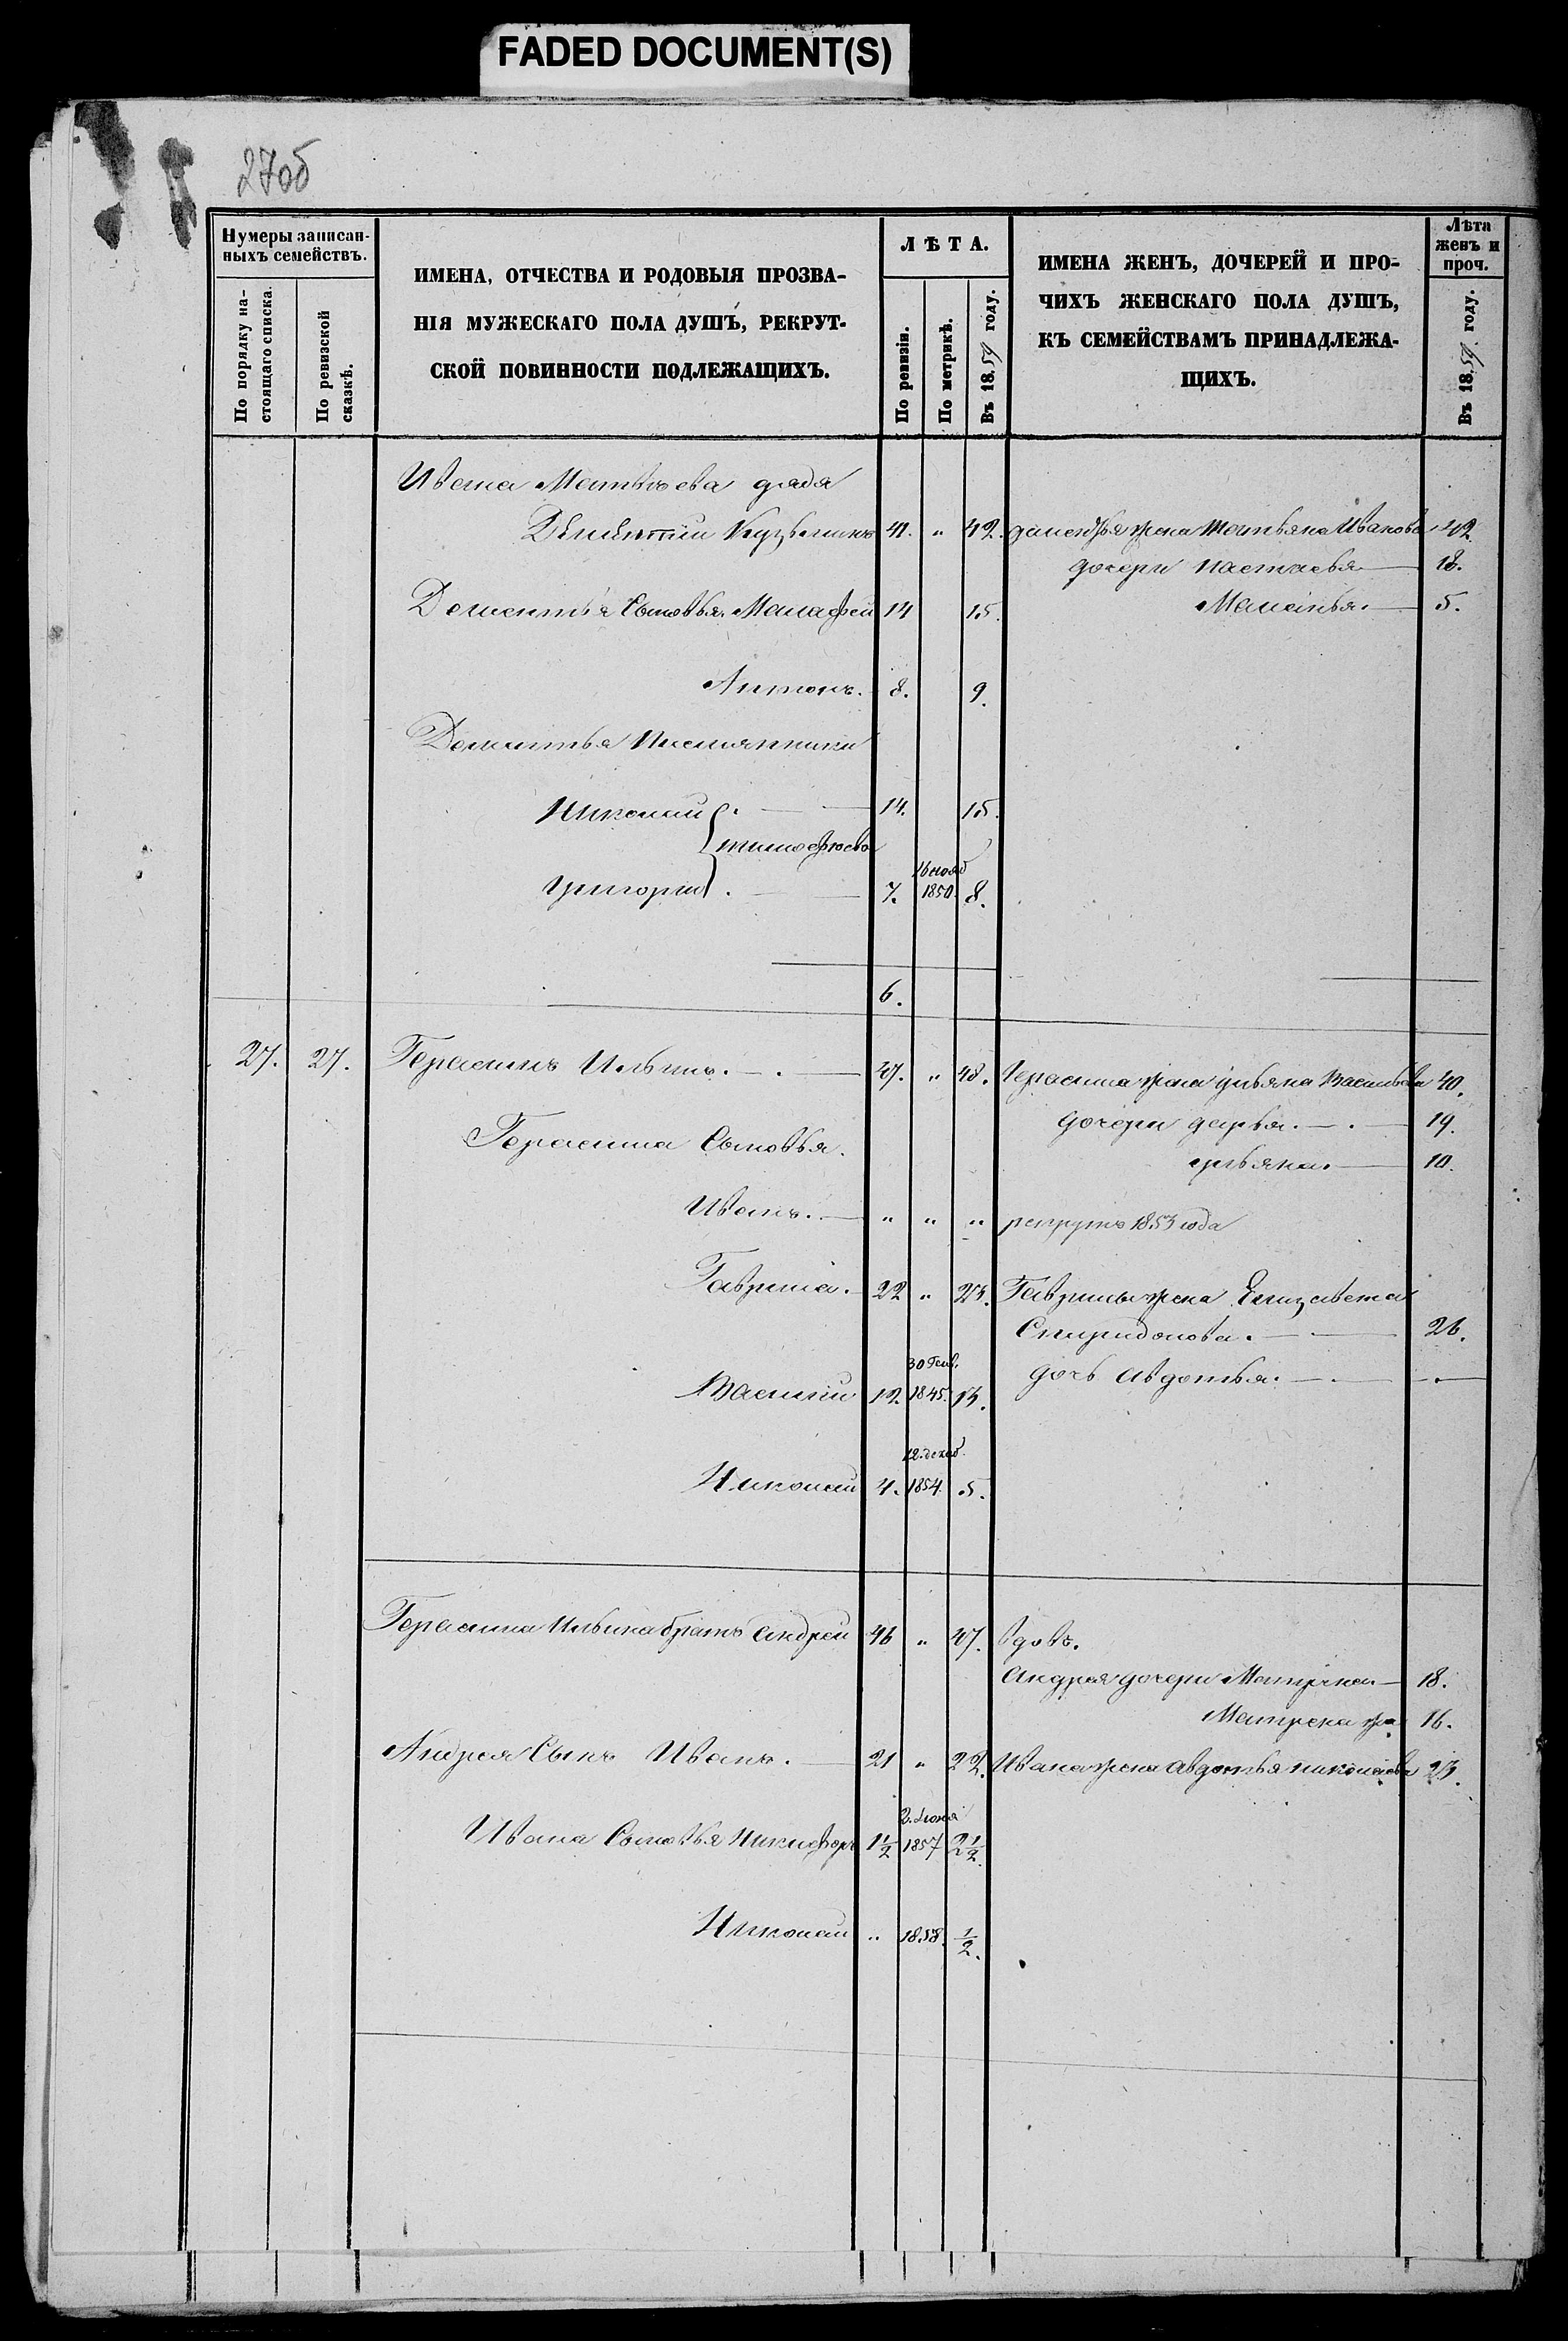 FADED DOCUMENT(S)
27об
Нумеры записан-
ныхъ семействъ.
По порядку на-
стоящаго списка.
По ревизской
сказкѣ.
ИМЕНА, ОТЧЕСТВА И РОДОВЫЯ ПРОЗВА-
НІЯ МУЖЕСКАГО ПОЛА ДУШЪ, РЕКРУТ-
СКОЙ ПОВИННОСТИ ПОДЛЕЖАЩИХЪ.
ЛѢТА.
По ревизіи.
По метрикѣ.
Въ 1859 году.
ИМЕНА ЖЕНЪ, ДОЧЕРЕЙ И ПРО-
ЧИХЪ ЖЕНСКАГО ПОЛА ДУШЪ,
КЪ СЕМЕЙСТВАМЪ ПРИНАДЛЕЖА-
ЩИХЪ.
Лѣта
женъ и
проч.
Въ 1859 году.
Ивана Матвѣева дядя
Дементій Кузьминъ 41. " 42. жена Татьяна Иванова 42
дочери Настасья 18.
Дементья Сыновья. Малафей 14 15. Меланья. 5.
Антонъ. 8. 9.
Дементья Племянники
Николай 14. 15.
Тимофеева
16 нояб
Григорій 7. 1850. 8.
6.
27. 27. Герасимъ Ильинъ. 47. " 48. Герасима жена Ульяна Васильева 40.
дочери дарья. 19.
Герасима Сыновья.
ульяна. 10.
Иванъ. " " " рекрутъ 1853 года
Гаврила. 22 " 23. Гаврилы жена Елизавета
Спиридонова. 26.
30 Генв.
дочь авдотья.
Василий 12. 1845. 13.
12. декаб.
Николай 4. 1854. 5.
Герасима Ильина братъ андрей 46 " 47. вдовъ.
андрея дочери Матрена 18.
Матрена 16.
Андрея Сынъ Иванъ. 21 " 22. Ивана жена авдотья николаева 23.
2. Июня
Ивана Сыновья Никифоръ 1 1/2 1857 2 1/2.
Николай " 1858. 1/2.